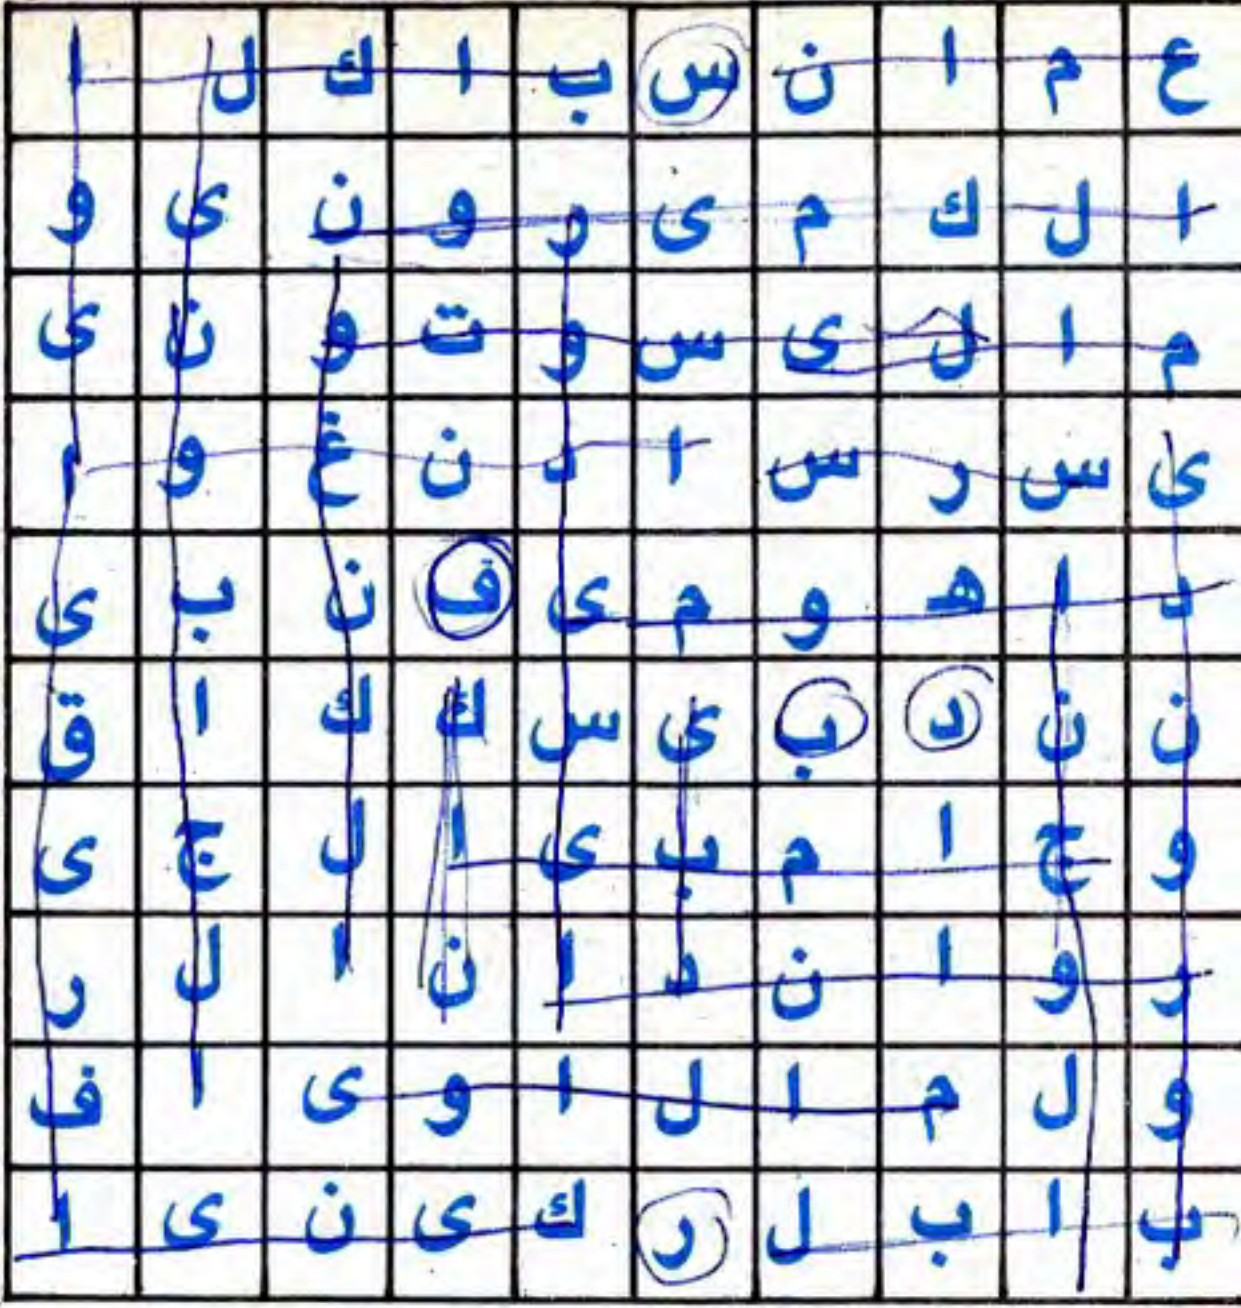 ع م ا ن س ب ا ك ل ا
ا ل ك م ى ر و ن ى و
م ا ل ى س و ت و ن ى
ى س ر س ا د ن غ و ر
د ا ه و م ى ف ن ب ى
ن ن د ب ى س ك ك ا ق
و ج ا م ب ى ا ل ج ى
ر و ا ن د ا ن ا ل ر
و ل م ا ل ا و ى ا ف
ب ا ب ل ر ك ى ن ى ا